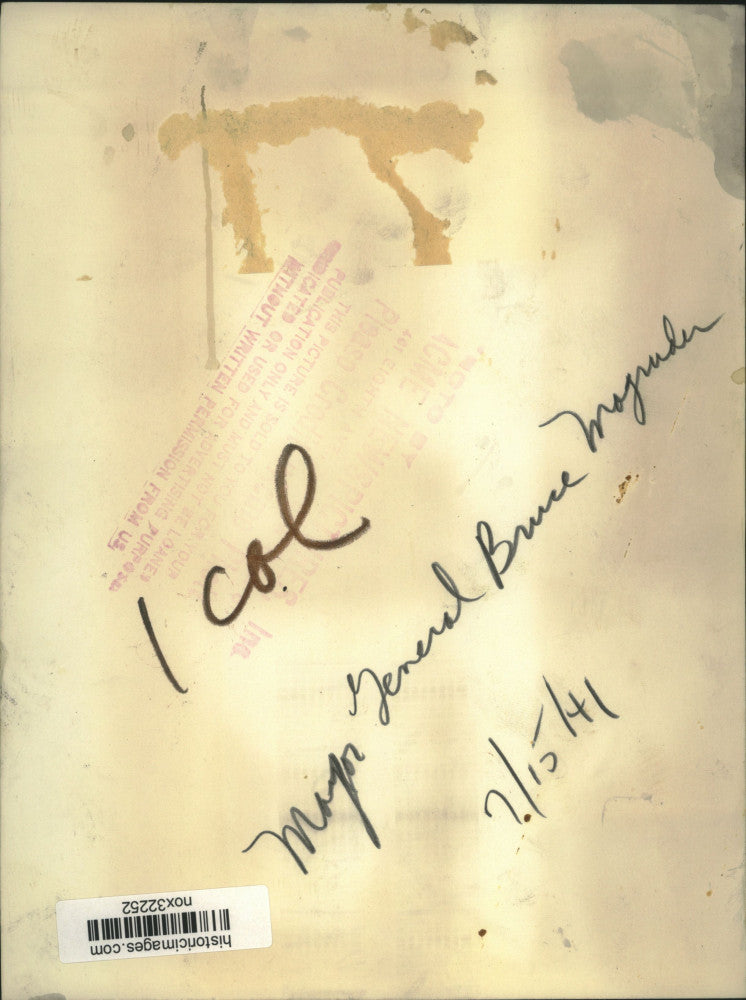 PHOTO BY
ACME NEWSPICTURES Inc.
461 EIGHTH
Please Credit
THIS PICTURE IS SOLD TO YOU FOR YOUR
PUBLICATION ONLY AND MUST NOT BE LOANED
OR USED FOR ADVERTISING PURPOSES
WITHOUT WRITTEN PERMISSION FROM US
1 col
Major General Bruce Magruder
7/15/41
historicimages.com
nox32252